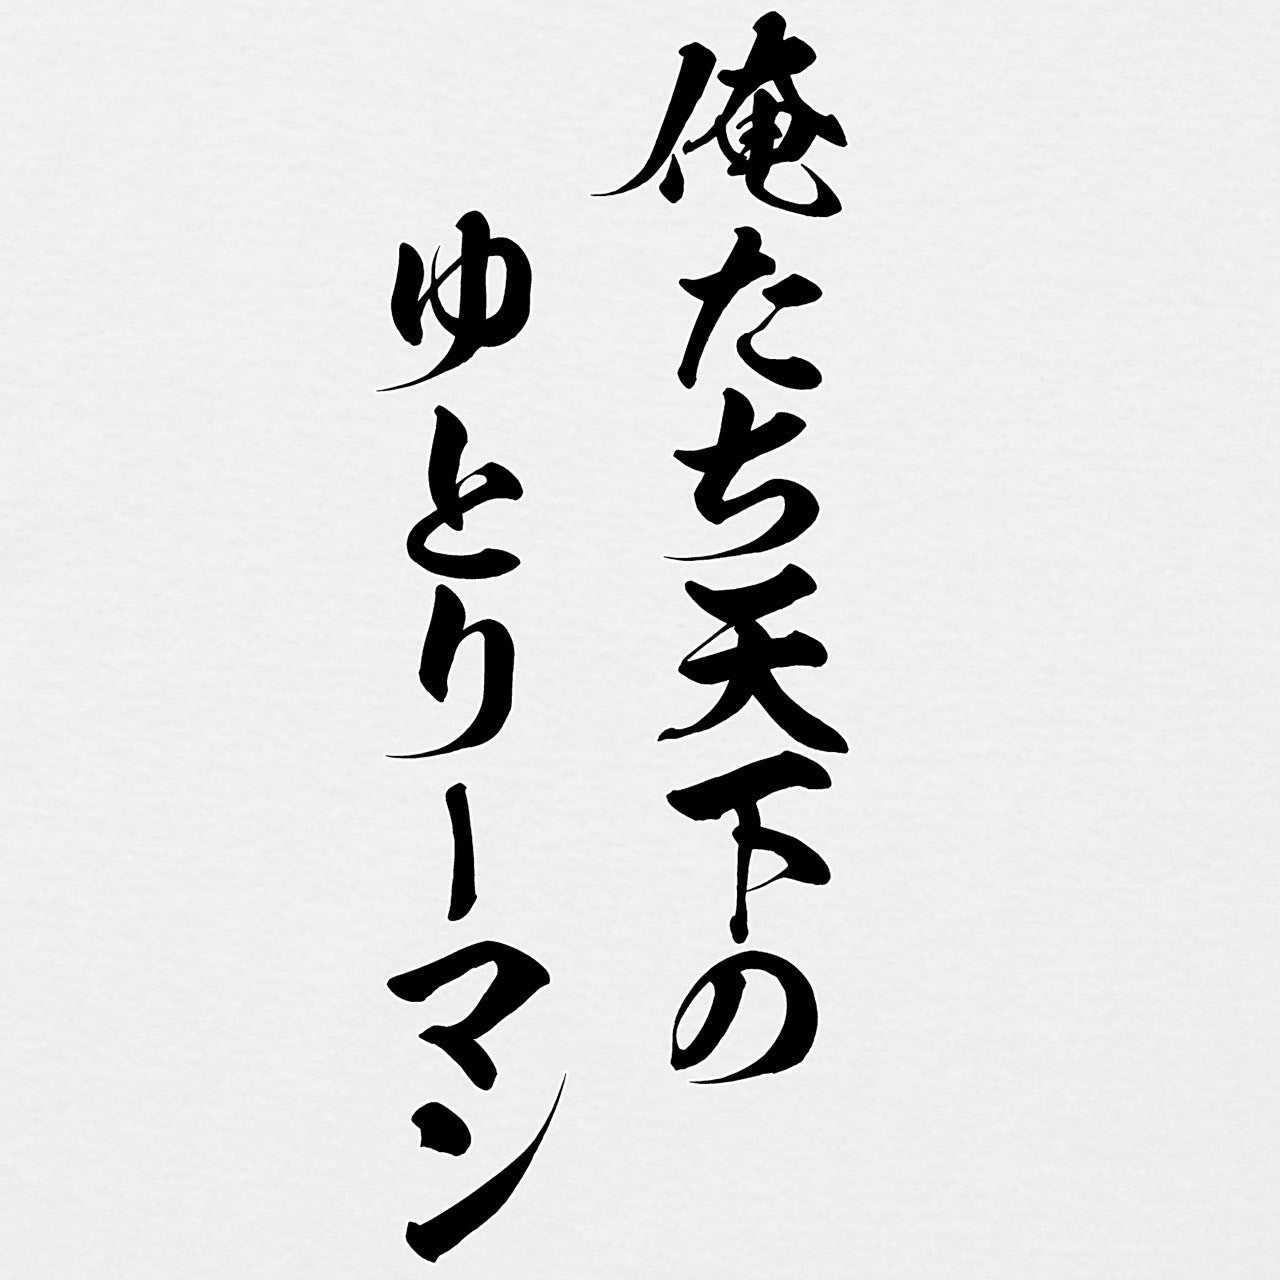 俺たち天下の
ゆとりーマン